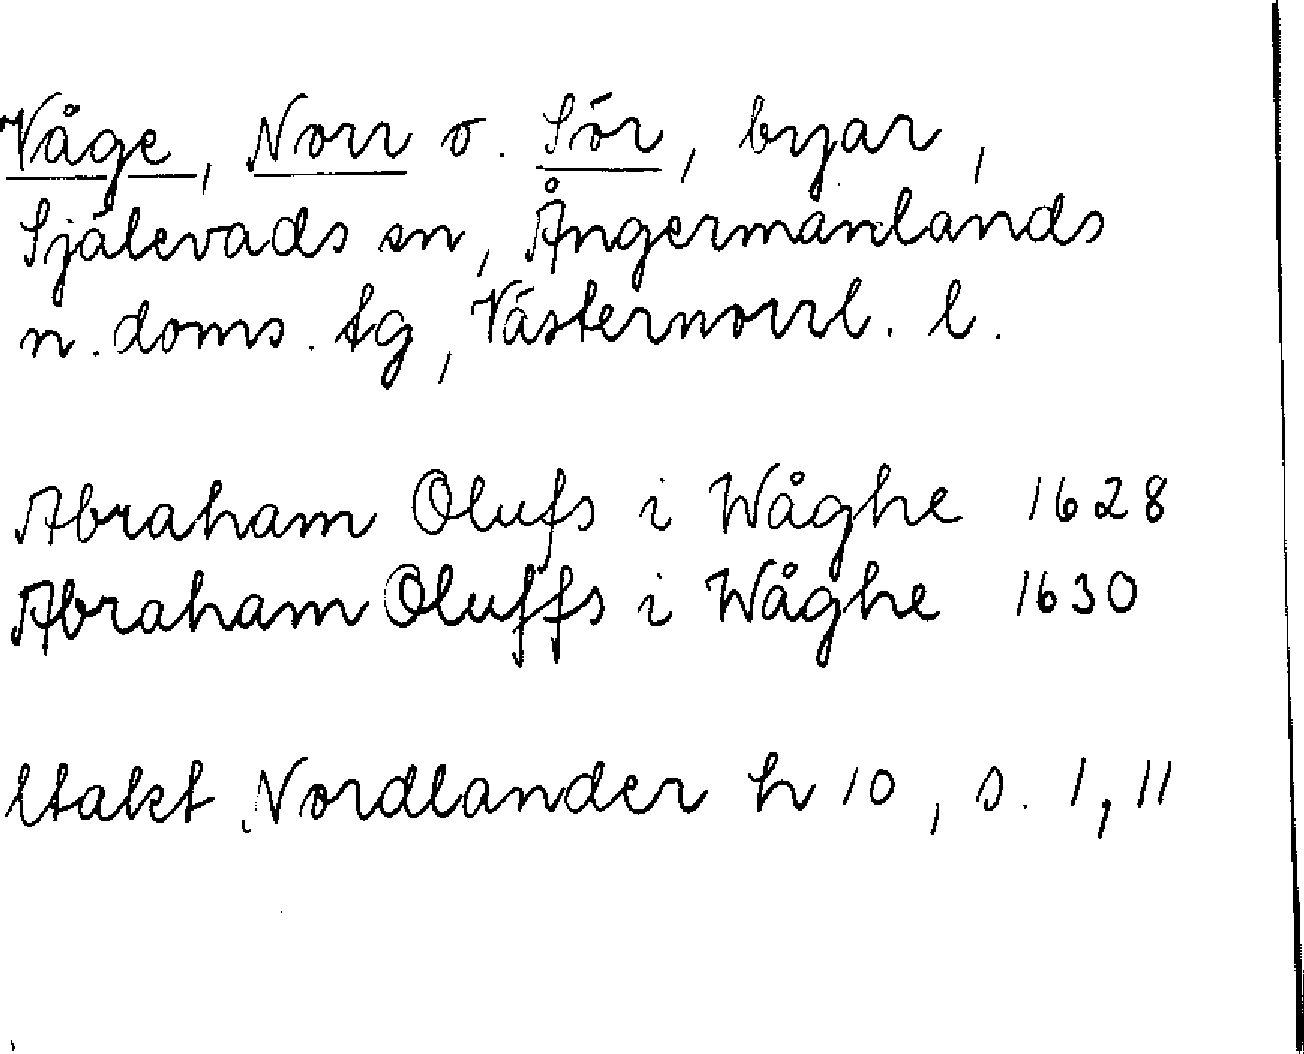 Våge, Norr o. Sör, byar,
Själevads sn, Ångermanlands
n. doms. tg, Västernorrl. l.
Abraham Olufs i Wåghe 1628
Abraham Oluffs i Wåghe 1630
Utakt Nordlander h 10, s. 1, 11